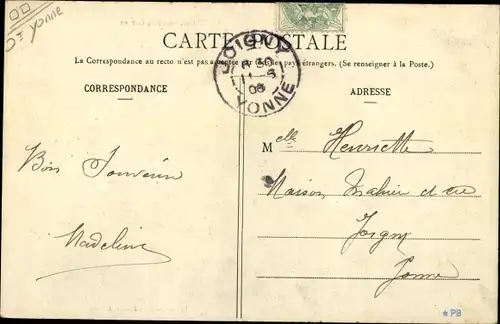 Dt Yonne
CARTE POSTALE
La Correspondance au recto n'est pas acceptée par tous les pays étrangers. (Se renseigner à la Poste.)
JOIGNY
YONNE
CORRESPONDANCE
ADRESSE
Melle Henriette
Bon Souvenir
Maison Mahieu et cie
Madeleine
Joigny
Yonne
PB